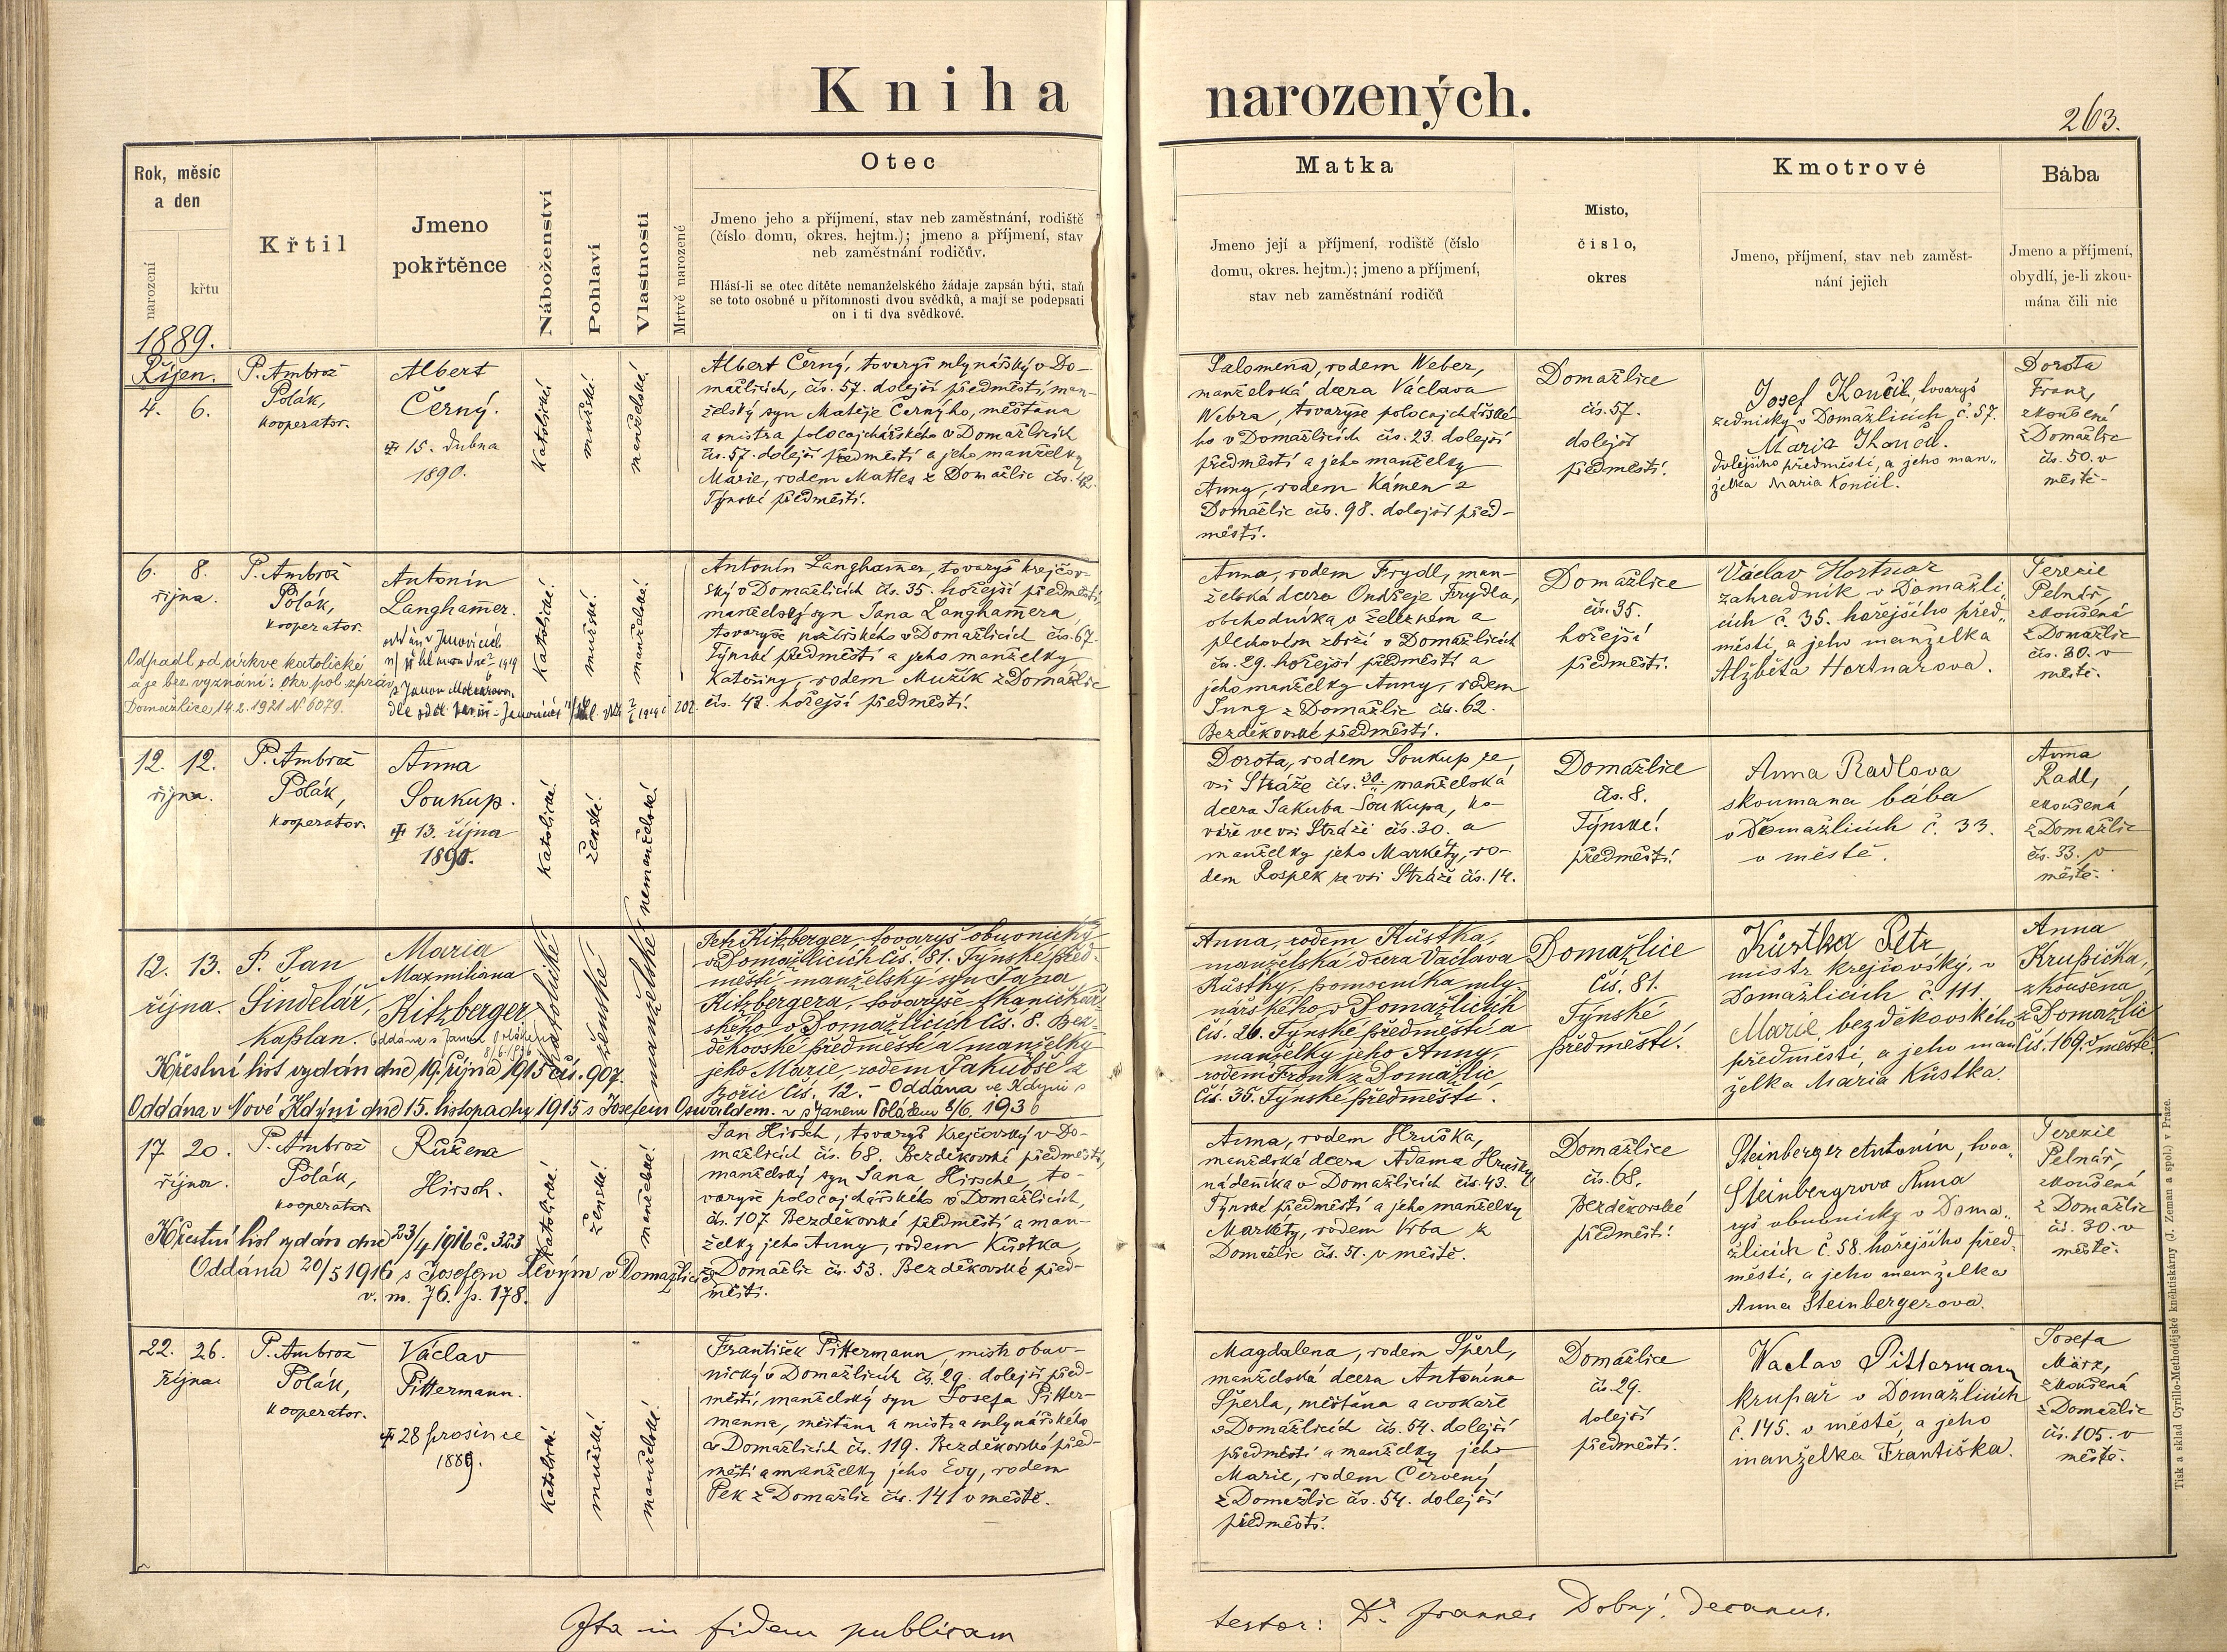 Kniha narozených.
263.
Rok, měsíc
a den
narození
křtu
Křtil
Jmeno
pokřtěnce
Náboženství
Pohlaví
Vlastnosti
Mrtvě narozené
Otec
Jmeno jeho a příjmení, stav neb zaměstnání, rodiště
(číslo domu, okres. hejtm.); jmeno a příjmení, stav
neb zaměstnání rodičův.
Hlásí-li se otec dítěte nemanželského žádaje zapsán býti, staň
se toto osobně u přítomnosti dvou svědků, a mají se podepsati
on i ti dva svědkové.
Matka
Jmeno její a příjmení, rodiště (číslo
domu, okres. hejtm.); jmeno a příjmení,
stav neb zaměstnání rodičů
Misto,
číslo,
okres
Kmotrové
Jmeno, příjmení, stav neb zaměst-
nání jejich
Bába
Jmeno a příjmení,
obydlí, je-li zkou-
mána čili nic
1889.
Říjen.
4. 6.
P. Ambrož
Polák,
kooperator.
Albert
Černý.
15. dubna
1890.
Katolické
mužské
manželské
Albert Černý, tovaryš mlynářský v Do-
mažlicích, čís. 57. dolejší předměstí, man-
želský syn Matěje Černýho, měšťana
a mistra polocajchářského v Domažlicích
čís. 57. dolejší předměstí a jeho manželky
Marie, rodem Mattes z Domažlic čís. 42.
Týnské předměstí.
Salomena, rodem Weber,
manželská dcera Václava
Webra, tovaryše polocajchářské-
ho v Domažlicích čís. 23. dolejší
předměstí a jeho manželky
Anny, rodem Kámen z
Domažlic čís. 98. dolejší před-
městí.
Domažlice
čís. 57.
dolejší
předměstí.
Josef Končil, tovaryš
zednický v Domažlicích, č. 57.
Maria
dolejšího předměstí, a jeho man-
želka Maria Končil.
Dorota
Franz,
zkoušená
z Domažlic
čís. 50. v
městě.
6. 8.
října.
P. Ambrož
Polák,
kooperator.
Antonín
Langhamer.
Odpadl od církve katolické
a je bez vyznání: okr. pol. zpráv.
Domažlice 14.2.1921 N 6079.
Katolické.
mužské.
manželské.
Antonín Langhamer, tovaryš krejčov-
ský v Domažlicích čís. 35. hořejší předměstí,
manželský syn Jana Langhamera,
tovaryše v Domažlicích čís. 67.
Týnské předměstí a jeho manželky
Kateřiny, rodem Mužík z Domažlic
čís. 42. hořejší předměstí.
Anna, rodem Frydl, man-
želská dcera Ondřeje Frydla,
obchodníka v železném a
plechovém zboží v Domažlicích
čís. 29. hořejší předměstí a
jeho manželky Anny, rodem
Jung z Domažlic čís. 62.
Bezděkovské předměstí.
Domažlice
čís. 35.
hořejší
předměstí.
Václav Hortnar
zahradník v Domažli-
cích č. 35. hořejšího před-
městí, a jeho manželka
Alžběta Hortnarova.
Terezie
Pelnář,
zkoušená
z Domažlic
čís. 30. v
městě.
12. 12.
října.
P. Ambrož
Polák,
kooperator.
Anna
Soukup.
13. října
1890.
Katolické.
ženské.
nemanželské
Dorota, rodem Soukup ze
vsi Stráže čís. 30. manželská
dcera Jakuba Soukupa, ko-
váře ve vsi Stráži čís. 30. a
manželky jeho Markéty, ro-
dem Pospěk ze vsi Stráže čís. 14.
Domažlice
čís. 8.
Týnské
předměstí
Anna Radlova
skoumana bába
v Domažlicích č. 33.
v městě.
Anna
Radl,
zkoušená
z Domažlic
čís. 33. v
městě.
12. 13.
října.
P. Jan
Šindelář,
Kaplan.
Maria
Maxmiliana
Kitzberger
Křestní list vydán dne 19. října 1915 čís. 907.
Oddána v Nové Kdyni dne 15. listopadu 1915 s Josefem Oswaldem.
katolické
ženské
manželské
Petr Kitzberger, tovaryš obuvnický
v Domažlicích čís. 81. Týnské před-
městí, manželský syn Jana
Kitzbergera, tovaryše tkaničkář-
ského v Domažlicích čís. 8. Bez-
děkovské předměstí a manželky
jeho Marie, rodem Jakubše z
Bořic čís. 12. - Oddána ve Kdyni
s Janem Polákem 8/6. 1936
Anna, rodem Kůstka,
manželská dcera Václava
Kůstky, pomocníka mly-
nářského v Domažlicích
čís. 26. Týnské předměstí a
manželky jeho Anny,
rodem Fronk z Domažlic
čís. 35. Týnské předměstí.
Domažlice
čís. 81.
Týnské
předměstí.
Kůstka Petr
mistr krejčovský, v
Domažlicích č. 111.
Marie, bezděkovského
předměstí, a jeho man-
želka Maria Kůstka.
Anna
Krupička,
zkoušena
z Domažlic
čís. 169. v městě.
17. 20.
října.
P. Ambrož
Polák,
kooperator
Růžena
Hirsch.
Křestní list vydán dne 23/4 1916 č. 323
Oddána 20/5 1916 s Josefem Levým v Domažlicích
v. m. 76. p. 178.
Katolické.
ženské.
manželské.
Jan Hirsch, tovaryš krejčovský v Do-
mažlicích čís. 68. Bezděkovské předměstí,
manželský syn Jana Hirsche, to-
varyše polocajchářského v Domažlicích,
čís. 107. Bezděkovské předměstí a man-
želky jeho Anny, rodem Kůstka,
z Domažlic čís. 53. Bezděkovské před-
městí.
Anna, rodem Hruška,
manželská dcera Adama Hrušky
nádeníka v Domažlicích čís. 43.
Týnské předměstí a jeho manželky
Markéty, rodem Vrba z
Domažlic čís. 51. v městě.
Domažlice
čís. 68.
Bezděkovské
předměstí.
Steinberger Antonín, tova-
Steinbergrova Anna
ryš obuvnický v Doma-
žlicích č. 58. hořejšího před-
městí, a jeho manželka
Anna Steinbergerova.
Terezie
Pelnář,
zkoušená
z Domažlic
čís. 30. v
městě.
22. 26.
října
P. Ambrož
Polák,
kooperator.
Václav
Pittermann.
28 prosince
1889.
Katolické.
mužské.
manželské.
František Pittermann, mistr obuv-
nický v Domažlicích čís. 29. dolejší před-
městí, manželský syn Josefa Pitter-
manna, měšťana a mistra mlynářského
v Domažlicích čís. 119. Bezděkovské před-
městí a manželky jeho Evy, rodem
Pek z Domažlic čís. 141 v městě.
Magdalena, rodem Šperl,
manželská dcera Antonína
Šperla, měšťana a cvokaře
v Domažlicích čís. 54. dolejší
předměstí a manželky jeho
Marie, rodem Červený
z Domažlic čís. 54. dolejší
předměstí.
Domažlice
čís. 29.
dolejší
předměstí.
Vaclav Pittermann
krupař v Domažlicích
č. 145. v městě, a jeho
manželka Františka.
Josefa
März,
zkoušená
z Domažlic
čís. 105. v
městě.
Ita in fidem publicam
testor: Dr. Joannes Dobrý, decanus.
Tisk a sklad Cyrillo-Methodějské kněhtiskárny (J. Zeman a spol.) v Praze.